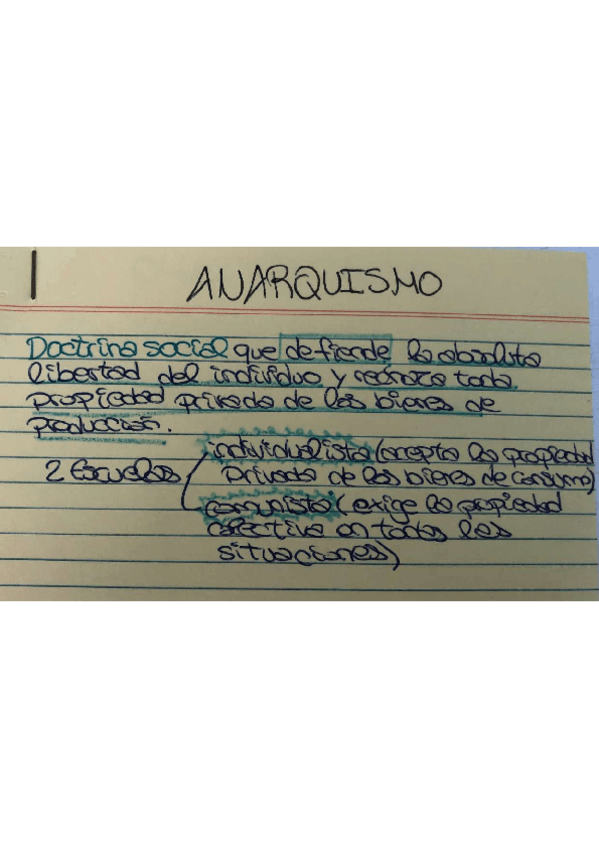 ANARQUISMO
Doctrina social que defiende la absoluta
libertad del individuo y rechaza toda
propiedad privada de los bienes de
producción.
individualista (acepta la propiedad
2 Escuelas privada de los bienes de consumo)
comunista (exige la propiedad
colectiva en todas las
situaciones)